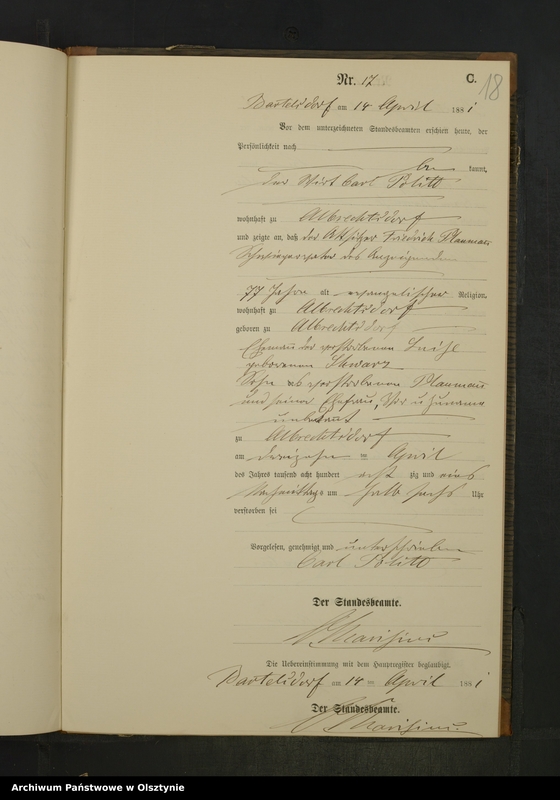 Nr. 17
C.
18
Bartelsdorf am 14 April 1881
Vor dem unterzeichneten Standesbeamten erschien heute, der
Persönlichkeit nach
be kannt,
der Wirt Carl Politt
wohnhaft zu Albrechtsdorf
und zeigte an, daß der Altsitzer Friedrich Plaumann
Schwiegervater des Anzeigenden
77 Jahre alt evangelischer Religion,
wohnhaft zu Albrechtsdorf
geboren zu Albrechtsdorf
Ehemann der verstorbenen
geborenen Schwarz
Sohn des verstorbenen Plaumann
und seiner Ehefrau, Vor u Zuname
unbekannt
zu Albrechtsdorf
am dreizehn ten April
des Jahres tausend acht hundert acht zig und eins
Nachmittags um halb sechs Uhr
verstorben sei
Vorgelesen, genehmigt und unterschrieben
Carl Politt
Der Standesbeamte.
Die Uebereinstimmung mit dem Hauptregister beglaubigt.
Bartelsdorf am 14 ten April 1881
Der Standesbeamte.
Archiwum Państwowe w Olsztynie